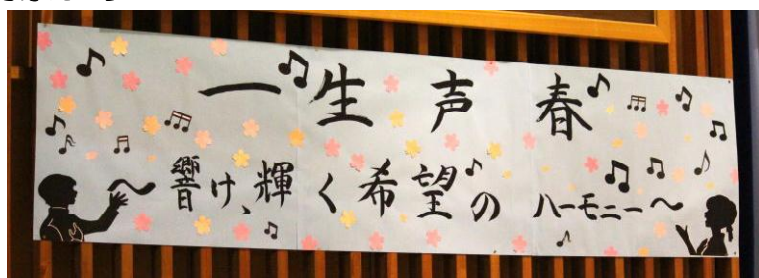 一生声春
～響け、輝く希望のハーモニー～